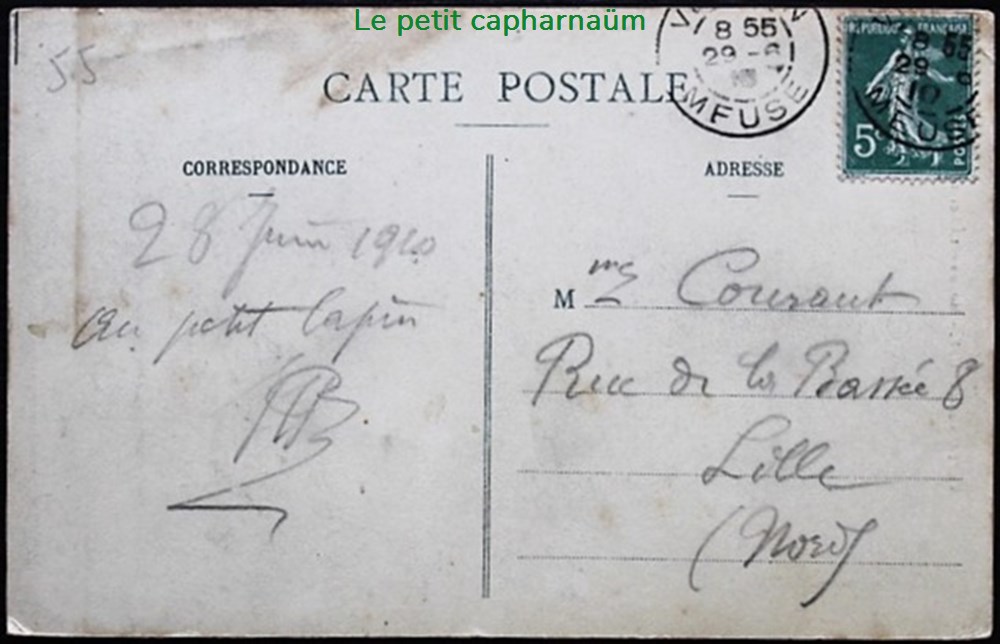 Le petit capharnaüm
55
8 55
29 - 6
MEUSE
REPUBLIQUE FRANÇAISE
8 55
29
10
5c
POSTES
CARTE POSTALE
CORRESPONDANCE
28 Juin 1910
au petit lapin
ADRESSE
Mms Courant
Rue de la Bassée 8
Lille
(Nord)